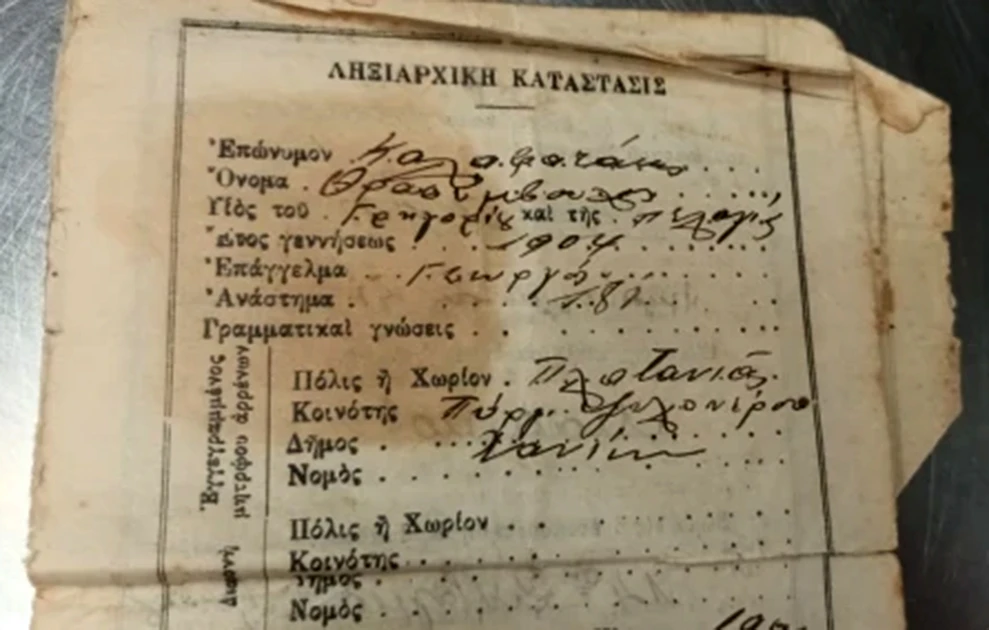 ΛΗΞΙΑΡΧΙΚΗ ΚΑΤΑΣΤΑΣΙΣ
Ἐπώνυμον Καλαφατάκης
Ὄνομα . Θρασύβουλος
Υἱὸς τοῦ . Γρηγορίου καὶ τῆς . Πελαγίας
Ἔτος γεννήσεως . 1904
Ἐπάγγελμα . Γεωργός
Ἀνάστημα . 1.81
Γραμματικαὶ γνώσεις
Ἐγγεγραμμένος
μητρῷου ἀρρένων
Πόλις ἢ Χωρίον . Πλατανιᾶς
Κοινότης Πύργ.
Δῆμος . Χανίων
Νομὸς
Πόλις ἢ Χωρίον
Κοινότης
Δῆμος
Νομὸς